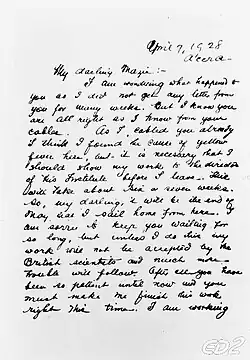 April 7, 1928
Accra
My darling Mazie:-
I am wondering what happened to
you as I did not get any letter from
you for many weeks. But I know you
are all right as I know from your
cables. As I cabled you already
I think I found the cause of yellow
fever here, but it is necessary that I
should show my work to the director
of this Institute before I leave. This
will take about six or seven weeks.
So, my darling, it will be the end of
May, as I sail home from here. I
am sorry to keep you waiting for
so long, but unless I do this my
work will not be accepted by the
British scientists and much more
trouble will follow. After all you have
been so patient until now and you
must make me finish this work
right this time. I am working